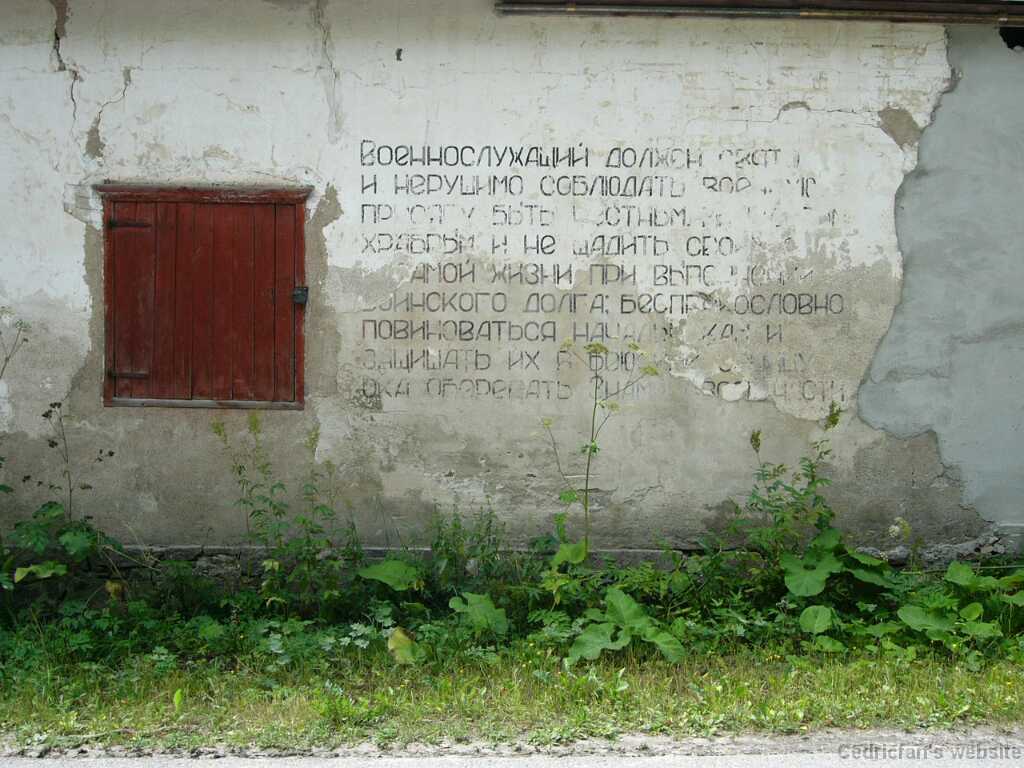 Военнослужащий должен свято
и нерушимо соблюдать военную
присягу быть честным,
храбрым и не щадить своей
самой жизни при выполнении
воинского долга; беспрекословно
повиноваться начальникам и
защищать их в бою
оберегать знамя части
Cedricfan's website